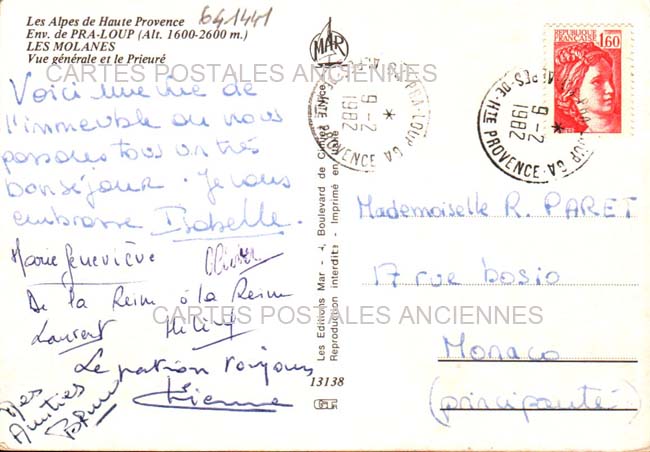 Les Alpes de Haute Provence
641441
Env. de PRA-LOUP (Alt. 1600-2600 m.)
LES MOLANES
Vue générale et le Prieuré
CARTES POSTALES ANCIENNES
Voici une vue de
l'immeuble où nous
passons tous un très
bon séjour. Je vous
embrasse Isabelle.
Marie Geneviève
Olivier
De la Reine à la Reine
Laurent
Le patron toujours
Etienne
Mes
Amitiés
Bruno
MAR
Les Editions Mar - Boulevard de - Nice
Reproduction interdite - Imprimé en
13138
PRA-LOUP 04
ALPES DE HTE PROVENCE
9-2
1982
*
PRA-LOUP 04
ALPES-DE-HTE PROVENCE
9-2
1982
*
REPUBLIQUE
FRANÇAISE
1,60
Mademoiselle R. PARET
17 rue bosio
CARTES POSTALES ANCIENNES
Monaco
(principauté)